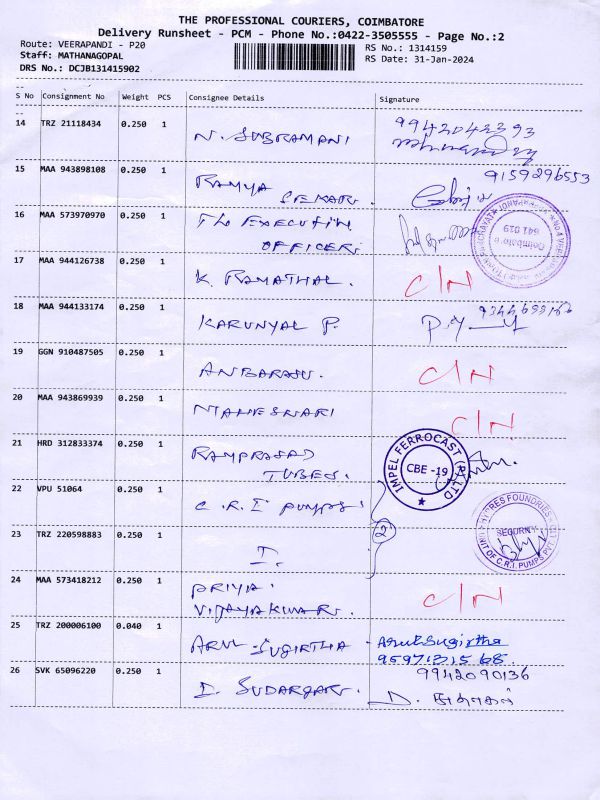 THE PROFESSIONAL COURIERS, COIMBATORE
Delivery Runsheet - PCM - Phone No.:0422-3505555 - Page No.:2
Route: VEERAPANDI - P20 RS No.: 1314159
Staff: MATHANAGOPAL RS Date: 31-Jan-2024
DRS No.: DCJB131415902
S No Consignment No Weight PCS Consignee Details Signature
14 TRZ 21118434 0.250 1 N. SUBRAMANI 9942042393
15 MAA 943898108 0.250 1 RAMYA SEKAR. 9159296553
16 MAA 573970970 0.250 1 The EXECUTIVE OFFICER. Coimbatore 641 019
17 MAA 944126738 0.250 1 K. RAMATHAL. C/N
18 MAA 944133174 0.250 1 KARUNYAL P.
19 GGN 910487505 0.250 1 ANBARASU. C/N
20 MAA 943869939 0.250 1 MAHESWARI C/N
21 HRD 312833374 0.250 1 RAMPRASAD TUBES. IMPEL FERROCAST (P) LTD CBE -19
22 VPU 51064 0.250 1 C.R.I PUMPS
23 TRZ 220598883 0.250 1 I. 2 SECURITY UNIT OF C.R.I. PUMPS PVT LTD
24 MAA 573418212 0.250 1 PRIYA VIJAYAKUMAR. C/N
25 TRZ 200006100 0.040 1 ARUL SUGIRTHA - Arul Sugirtha
26 SVK 65096220 0.250 1 9942090136